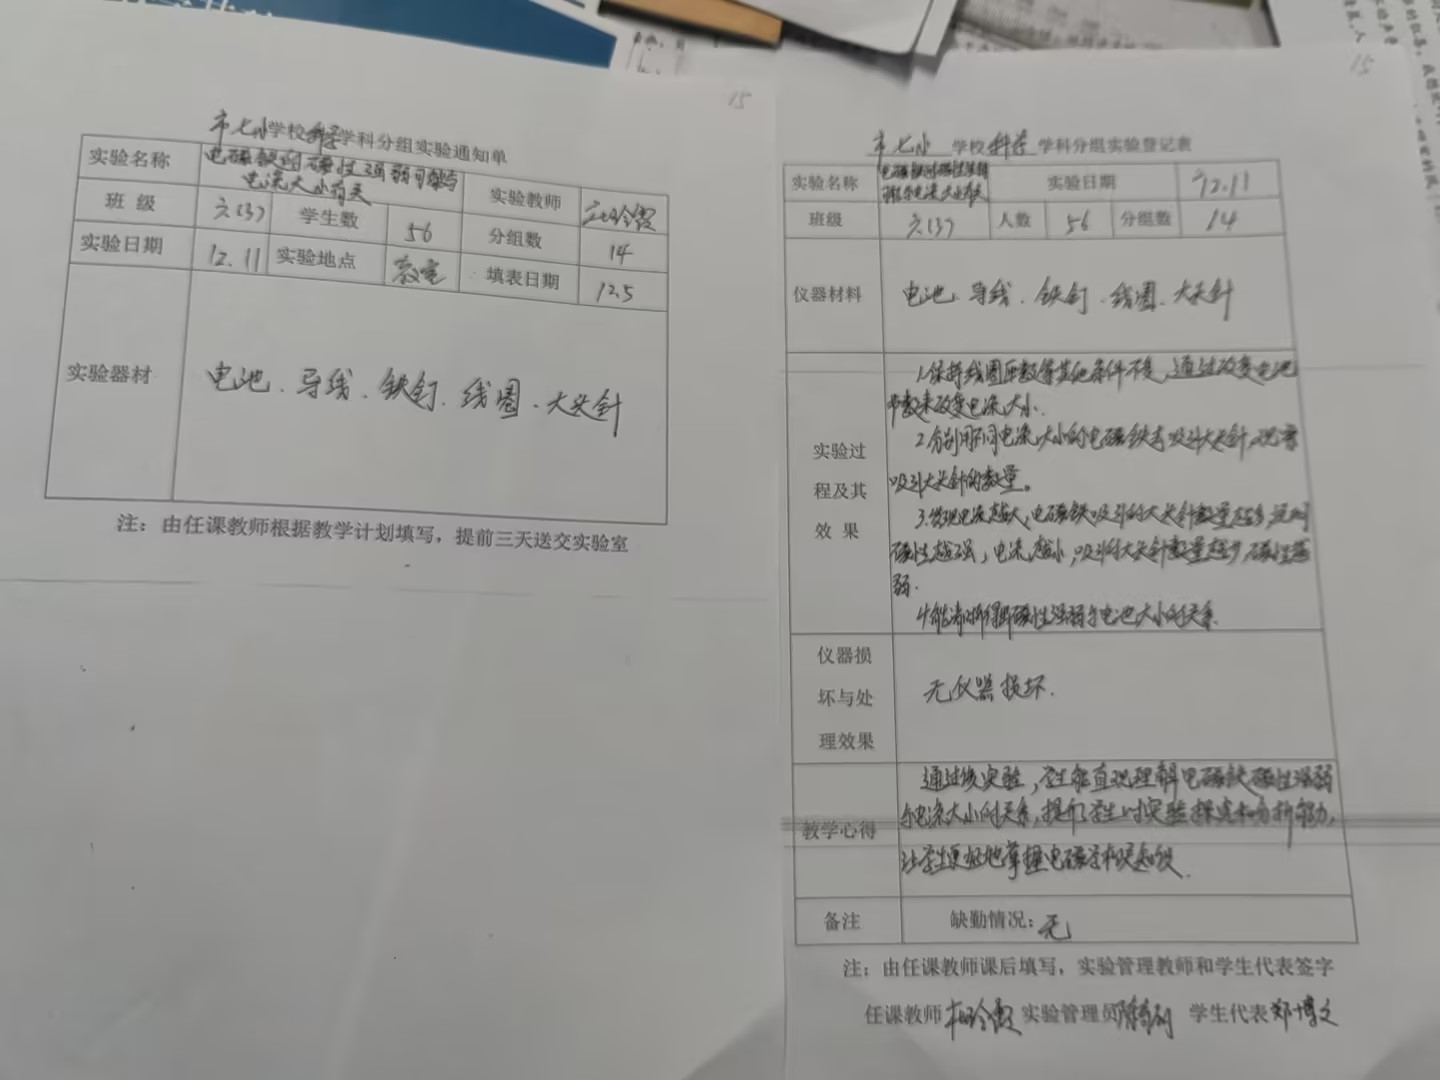 15
市七小学校科学学科分组实验通知单
实验名称 电磁铁的磁性强弱可能与
电流大小有关
实验教师
班 级 六(3) 学生数 56 分组数 14
实验日期 12.11 实验地点 教室 填表日期 12.5
实验器材 电池、导线、铁钉、线圈、大头针
注：由任课教师根据教学计划填写，提前三天送交实验室
15
市七小 学校科学 学科分组实验登记表
实验名称 电磁铁的磁性强弱
可能与电流大小有关
实验日期 12.11
班级 六(3) 人数 56 分组数 14
仪器材料 电池、导线、铁钉、线圈、大头针
实验过
程及其
效 果
1.保持线圈匝数等其他条件不变，通过改变电池
节数来改变电流大小.
2.分别用不同电流大小的电磁铁去吸引大头针，观察
吸引大头针的数量。
3.发现电流越大，电磁铁吸引的大头针数量越多，说明
磁性越强，电流越小，吸引的大头针数量越少，磁性越
弱.
4.能清晰得出磁性强弱与电池大小的关系.
仪器损
坏与处
理效果
无仪器损坏.
教学心得
通过该实验，学生能直观理解电磁铁磁性强弱
与电流大小的关系，提升了学生的实验探究和分析能力，
让学生更好地掌握电磁学相关知识.
备注 缺勤情况：无
注：由任课教师课后填写，实验管理教师和学生代表签字
任课教师 实验管理员 学生代表 郑博文